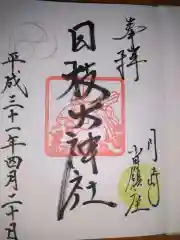 奉拝
日枝大神社
平成三十一年四月二十日